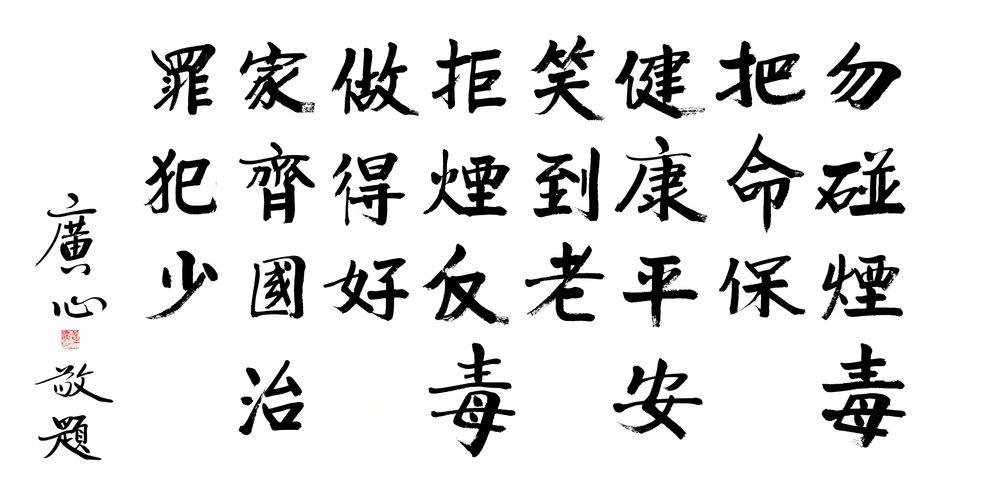 勿碰煙毒
把命保
健康平安
笑到老
拒煙反毒
做得好
家齊國治
罪犯少
廣心敬題